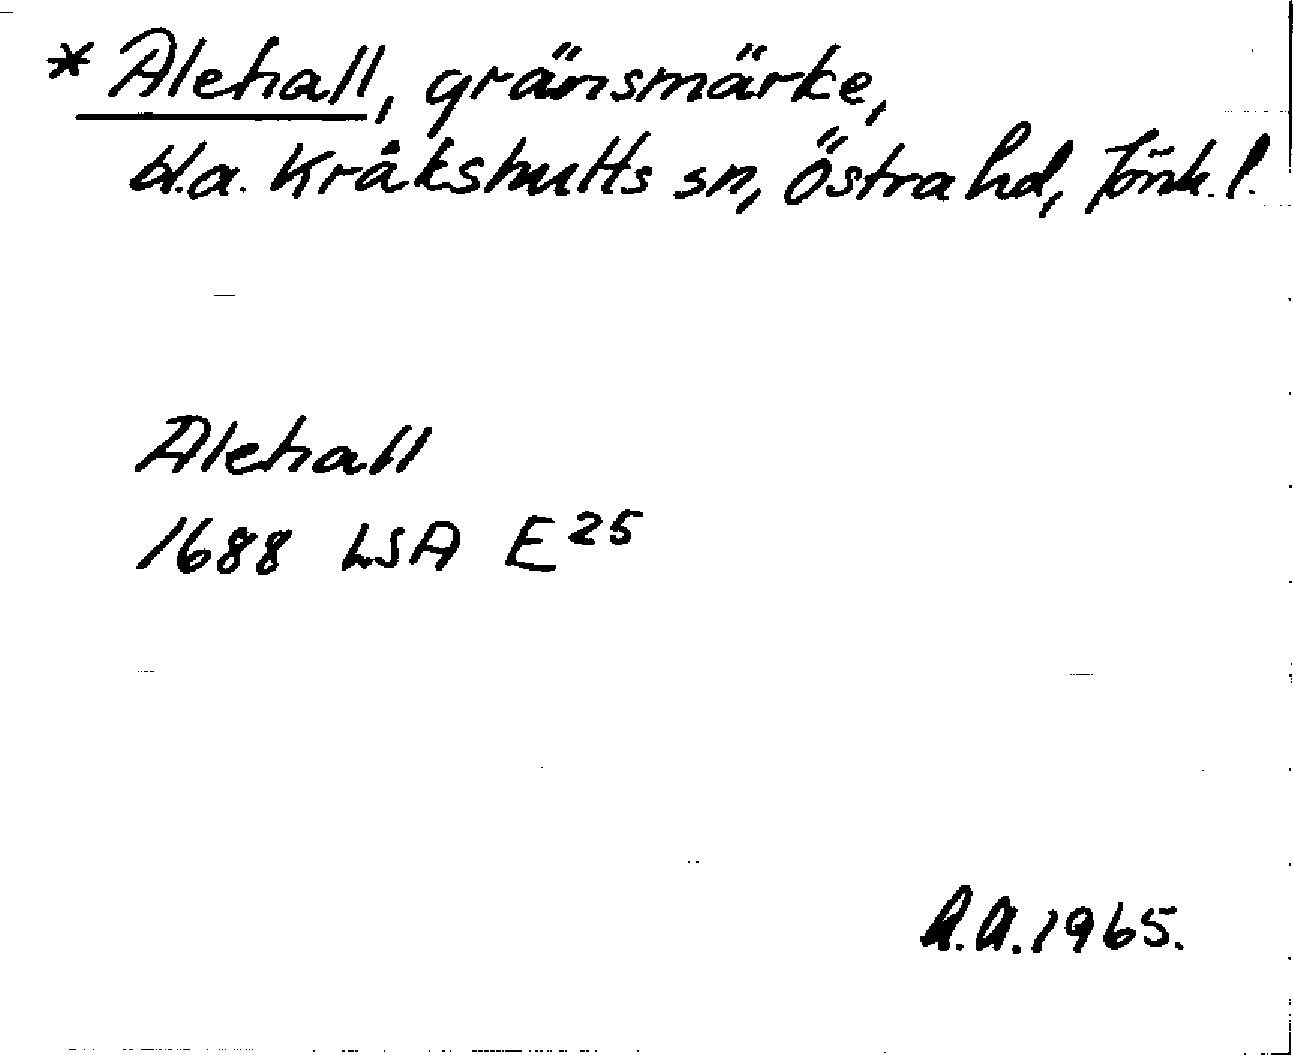 * Alehall, gränsmärke,
bl.a. Kråkshults sn, Östra hd, Jönk. l.
Alehall
1688 LSA E25
A.A. 1965.